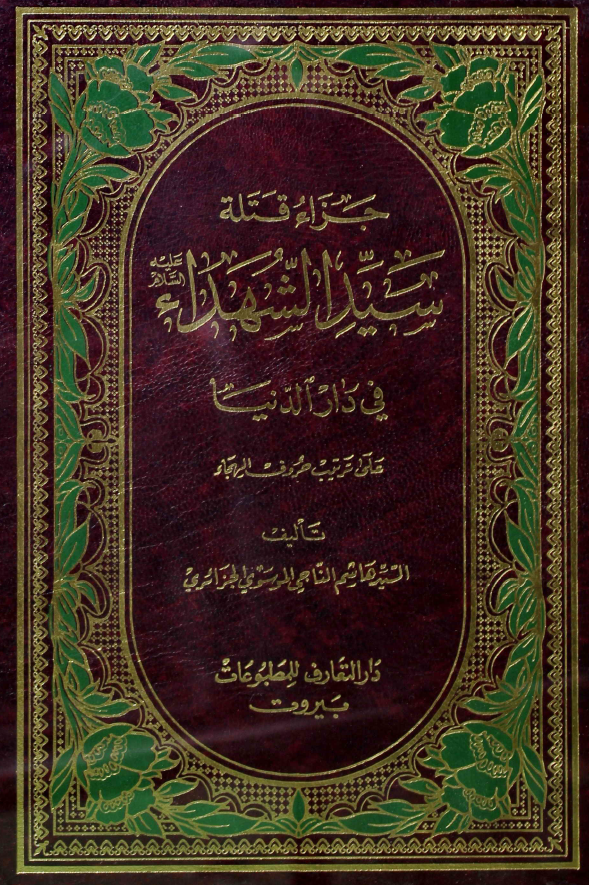 جَزَاءُ قَتَلَة
سَيِّدِ الشُّهَدَاءِ عَلَيْهِ السَّلَام
في دَارِ الدّنيَا
عَلى تَرتيب حروف الهجاء
تَأليف
السيّد هَاشم النّاجي الموسَوي الجزائري
دَار التعَارف للمَطبُوعَات
بَيروت